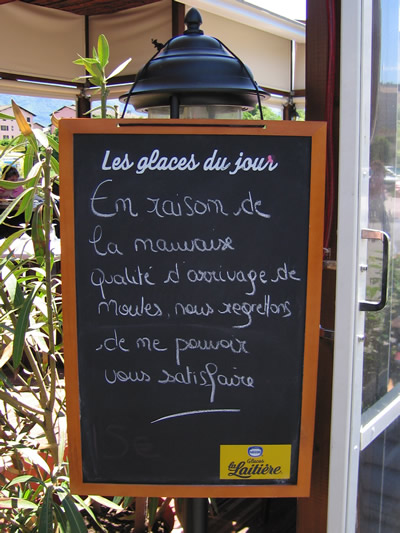 Les glaces du jour
En raison de
la mauvaise
qualité d'arrivage de
moules, nous regrettons
de ne pouvoir
vous satisfaire
15€
Glaces
la Laitière